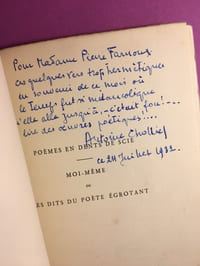 Pour Madame Pierre Farnoux
ces quelques vers trop hermétiques
en souvenir de ce mois où
le temps fut si mélancolique
qu'elle alla jusqu'à, - c'était fou! -
lire des œuvres poétiques!...
Antoine Chollier
ce 24 Juillet 1932
POÈMES EN DENTS DE SCIE
MOI-MÊME
OU
LES DITS DU POÈTE ÉGROTANT